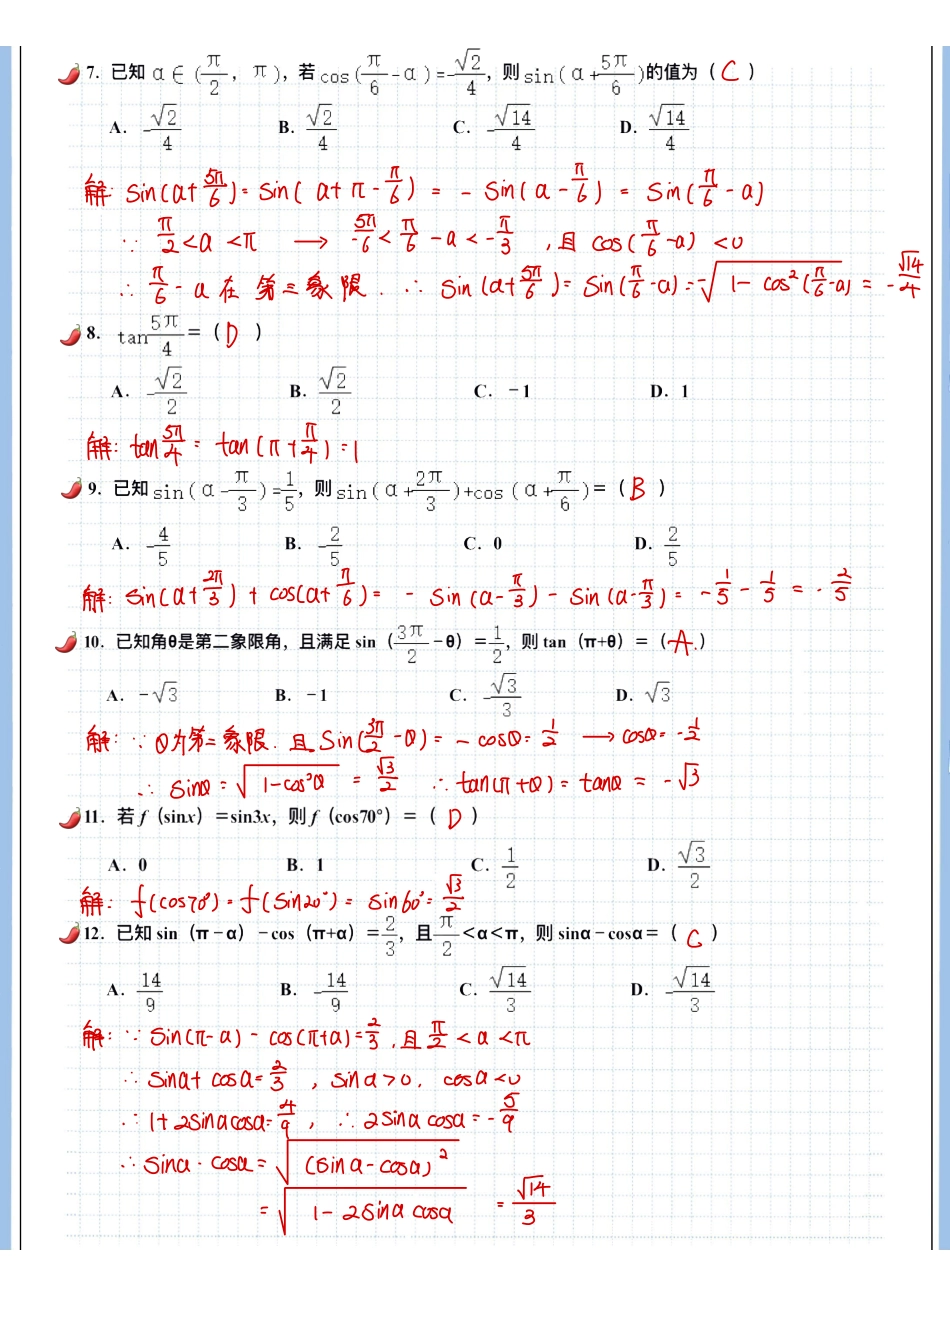 7. 已知 α∈(π/2, π), 若 cos(π/6-α)=-√2/4, 则 sin(α+5π/6)的值为( C )
A. -√2/4 B. √2/4 C. -√14/4 D. √14/4
解: sin(α+5π/6)=sin(α+π-π/6)=-sin(α-π/6)=sin(π/6-α)
∵ π/2<α<π → -5π/6<π/6-α<-π/3, 且 cos(π/6-α)<0
∴ π/6-α在第三象限. ∴ sin(α+5π/6)=sin(π/6-α)=-√(1-cos²(π/6-α))=-√14/4
8. tan5π/4=( D )
A. -√2/2 B. √2/2 C. -1 D. 1
解: tan5π/4=tan(π+π/4)=1
9. 已知 sin(α-π/3)=1/5, 则 sin(α+2π/3)+cos(α+π/6)=( B )
A. -4/5 B. -2/5 C. 0 D. 2/5
解: sin(α+2π/3)+cos(α+π/6)=-sin(α-π/3)-sin(α-π/3)=-1/5-1/5=-2/5
10. 已知角θ是第二象限角, 且满足 sin(3π/2-θ)=1/2, 则 tan(π+θ)=( A. )
A. -√3 B. -1 C. -√3/3 D. √3
解: ∵ θ为第二象限. 且 sin(3π/2-θ)=-cosθ=1/2 → cosθ=-1/2
∴ sinθ=√(1-cos²θ)=√3/2 ∴ tan(π+θ)=tanθ=-√3
11. 若 f(sinx)=sin3x, 则 f(cos70°)=( D )
A. 0 B. 1 C. 1/2 D. √3/2
解: f(cos70°)=f(sin20°)=sin60°=√3/2
12. 已知 sin(π-α)-cos(π+α)=2/3, 且π/2<α<π, 则 sinα-cosα=( C )
A. 14/9 B. -14/9 C. √14/3 D. -√14/3
解: ∵ sin(π-α)-cos(π+α)=2/3, 且π/2<α<π
∴ sinα+cosα=2/3, sinα>0. cosα<0
∴ 1+2sinαcosα=4/9, ∴ 2sinαcosα=-5/9
∴ sinα-cosα=√(sinα-cosα)²
=√(1-2sinαcosα) =√14/3